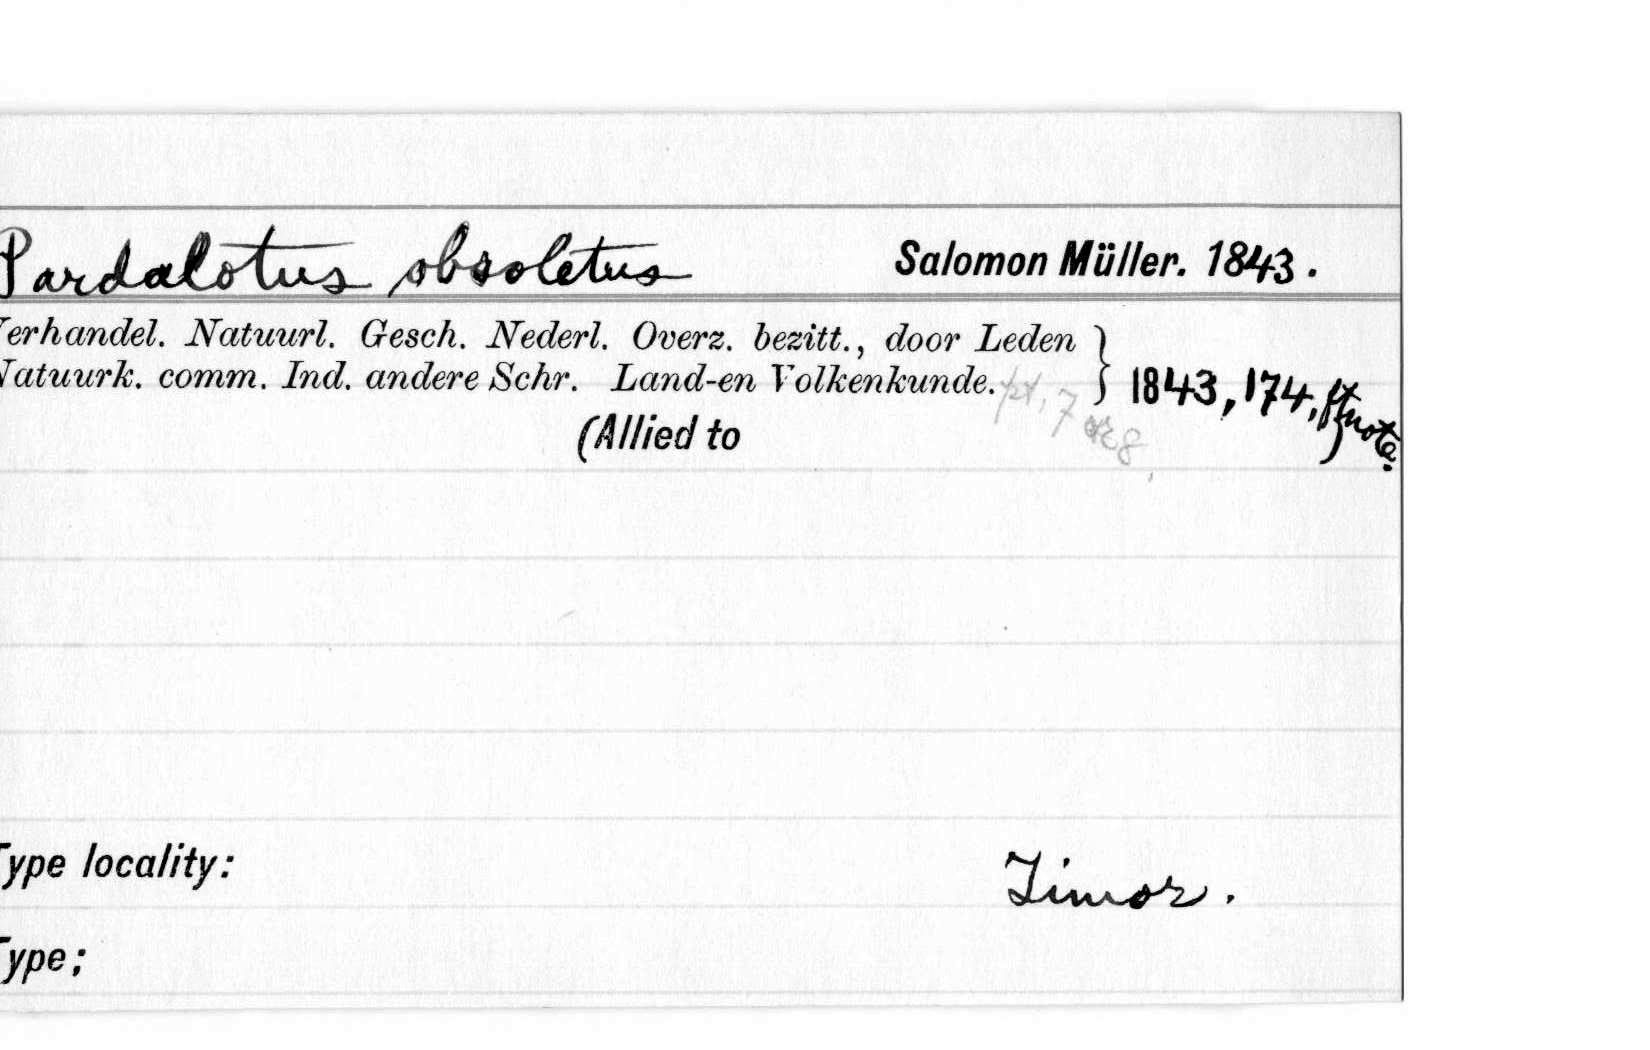 Pardalotus obsoletus Salomon Müller. 1843.
Verhandel. Natuurl. Gesch. Nederl. Overz. bezitt., door Leden
Natuurk. comm. Ind. andere Schr. Land-en Volkenkunde. } 1843, 174, ftnote.
pt. 7 org
(Allied to )
Type locality: Timor.
Type;